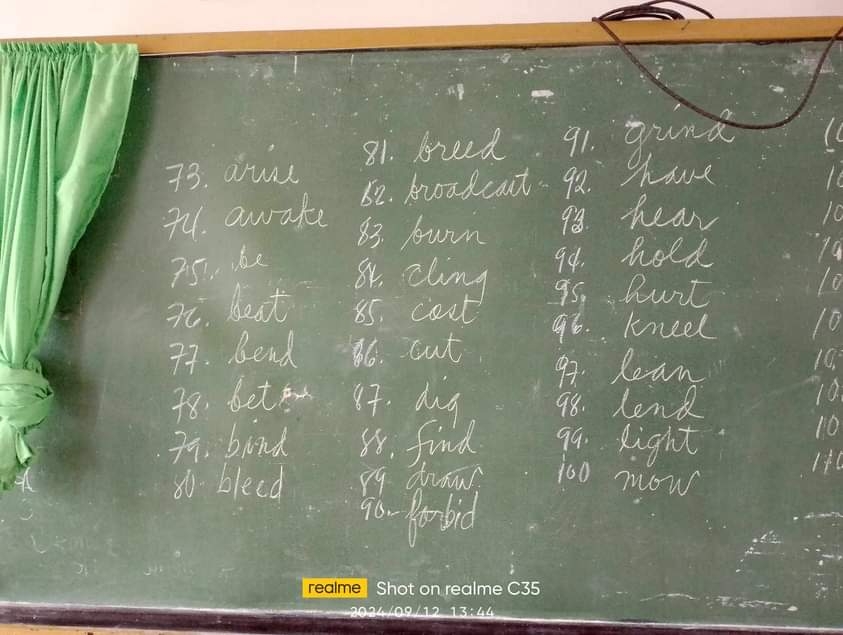 73. arise
74. awake
75. be
76. beat
77. bend
78. bet
79. bind
80. bleed
81. breed
82. broadcast
83. burn
84. cling
85. cost
86. cut
87. dig
88. find
89 draw
90. forbid
91. grind
92. have
93. hear
94. hold
95. hurt
96. kneel
97. lean
98. lend
99. light
100 mow
realme Shot on realme C35
2024/09/12 13:44